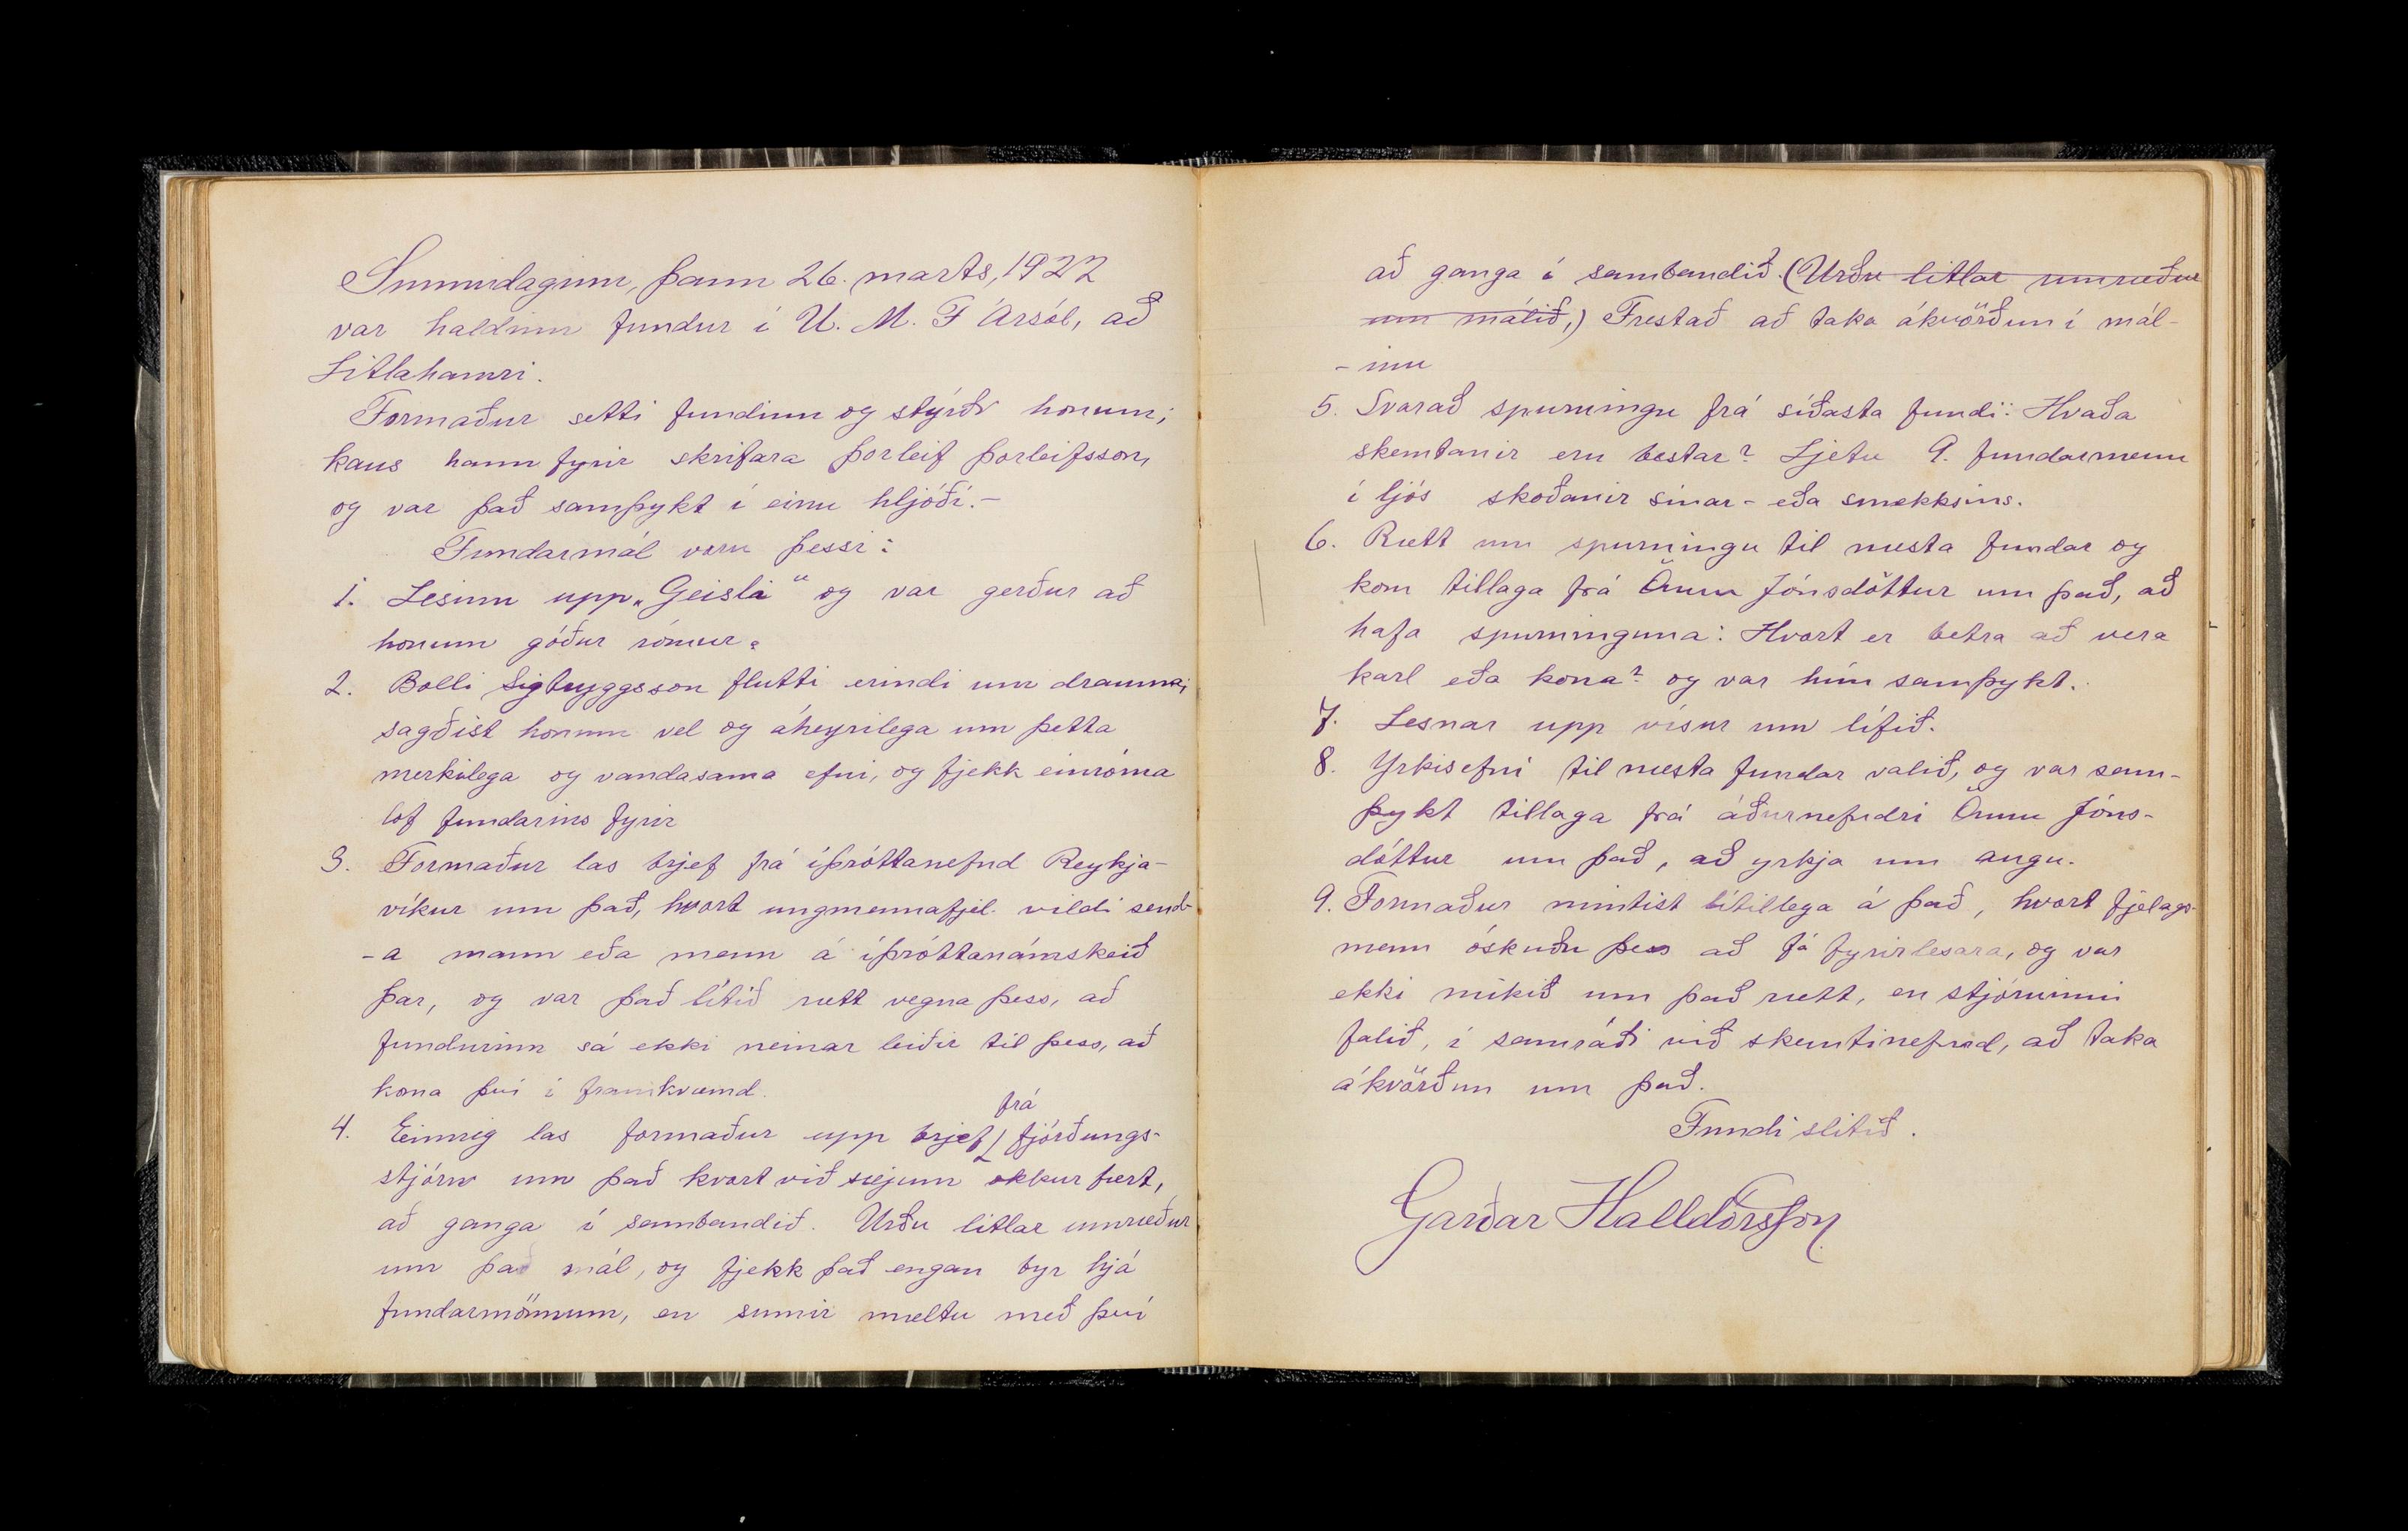 Sunnudaginn, þann 26. marts, 1922
var haldinn fundur í U. M. F Ársól, að
Litlahamri.
Formaður setti fundinn og stýrði honum;
kaus hann fyrir skrifara Þorleif Þorleifsson,
og var það samþykt í einu hljóði.-
Fundarmál voru þessi:
1. Lesinn upp „Geisli“ og var gerður að
honum góður rómur.
2. Bolli Sigtryggsson flutti erindi um drauma;
sagðist honum vel og áheyrilega um þetta
merkilega og vandasama efni, og fjekk einróma
lof fundarins fyrir
3. Formaður las brjef frá íþróttanefnd Reykja-
víkur um það, hvort ungmennafjel. vildi send-
-a mann eða menn á íþróttanámskeið
þar, og var það lítið rætt vegna þess, að
fundurinn sá ekki neinar leiðir til þess, að
koma því í framkvæmd.
4. Einnig las formaður upp brjef frá fjórðungs-
stjórn um það hvort við sæjum okkur fært,
að ganga í sambandið. Urðu litlar umræður
um það mál, og fjekk það engan byr hjá
fundarmönnum, en sumir mæltu með því
að ganga í sambandið. (Urðu litlar umræður
um málið,) Frestað að taka ákvörðun í mál-
-inu
5. Svarað spurningu frá síðasta fundi: Hvaða
skemtanir eru bestar? Ljetu 9. fundarmenn
í ljós skoðanir sínar - eða smekksins.
6. Rætt um spurningu til næsta fundar og
kom tillaga frá Önnu Jónsdóttur um það, að
hafa spurninguna: Hvort er betra að vera
karl eða kona? og var hún samþykt.
7. Lesnar upp vísur um lífið.
8. Yrkisefni til næsta fundar valið, og var sam-
þykt tillaga frá áðurnefndri Önnu Jóns-
dóttur um það, að yrkja um augu.
9. Formaður mintist lítillega á það, hvort fjelags-
menn óskuðu þess að fá fyrirlesara, og var
ekki mikið um það rætt, en stjórninni
falið, í samráði við skemtinefnd, að taka
ákvörðun um það.
Fundi slitið.
Garðar Halldórsson